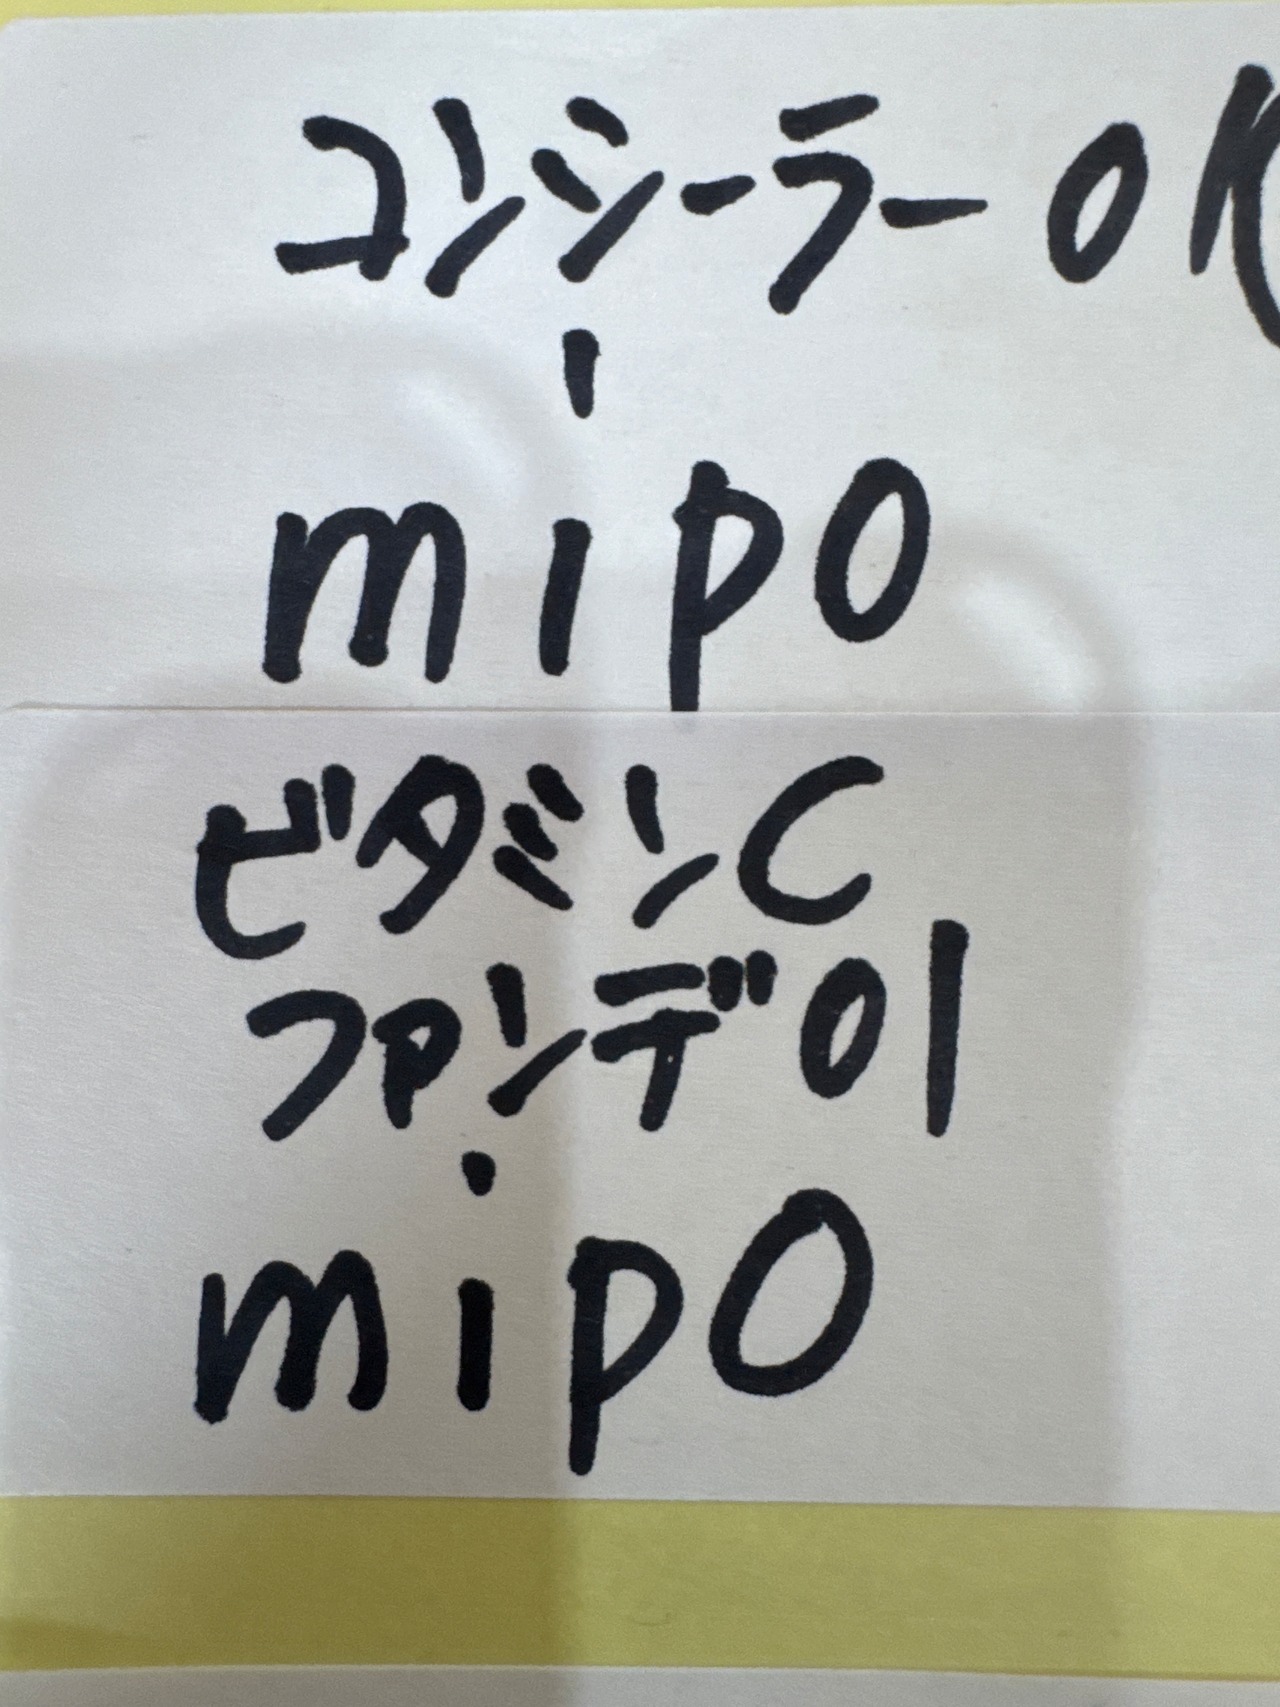 コンシーラー OK
mipo
ビタミンC
ファンデ01
mipo